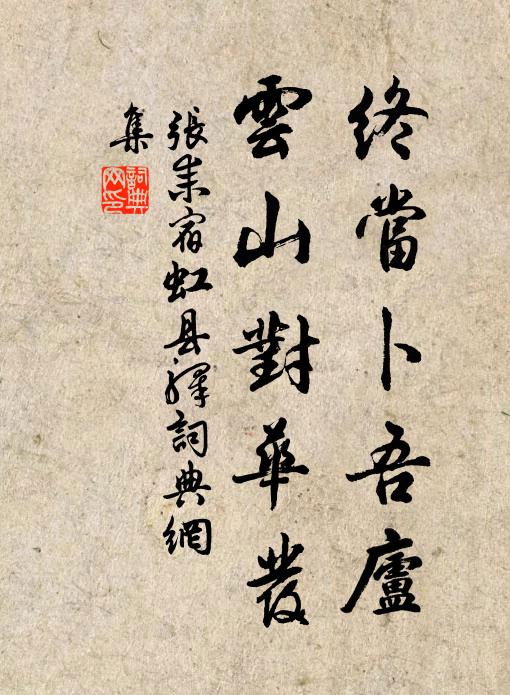 終當卜吾廬
雲山對華發
張耒宿虹县驛詞典網
集
詞典
网印